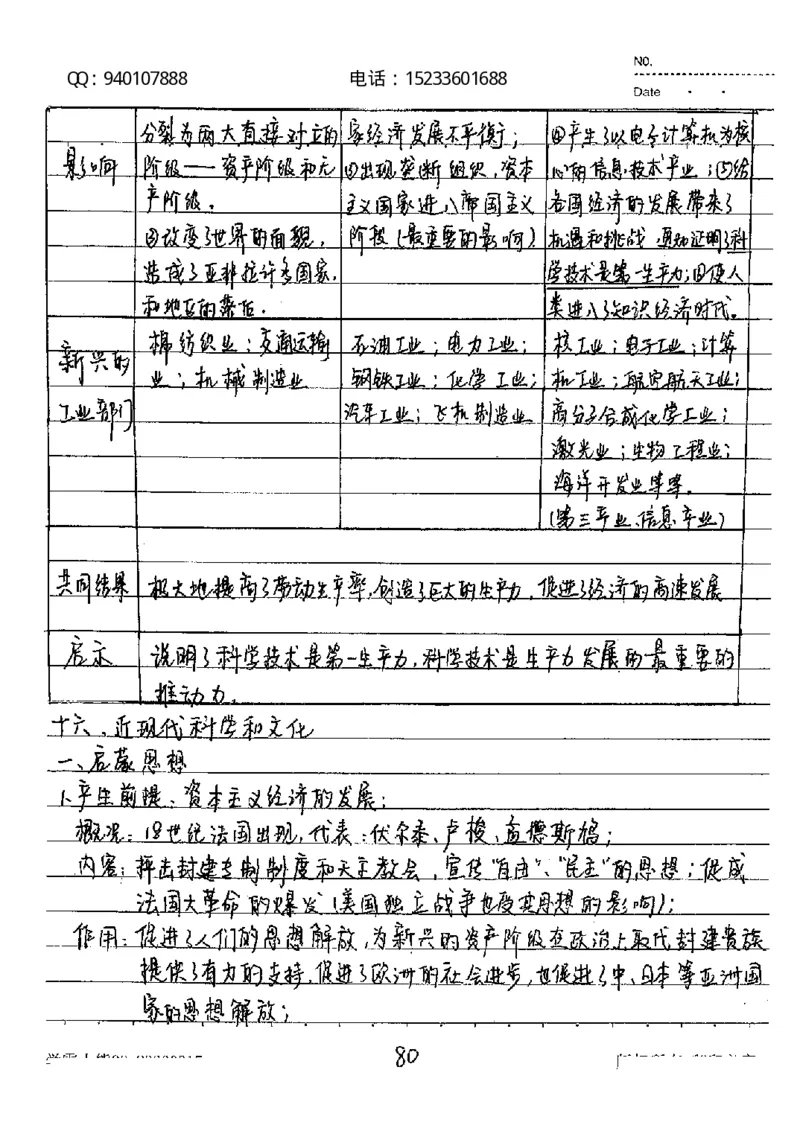 No.
QQ：940107888 电话：15233601688
Date
影响
分裂为两大直接对立的
阶级——资产阶级和无
产阶级。
④改变了世界的面貌，
造成了亚非拉许多国家、
和地区的落后。
家经济发展不平衡；
④出现垄断组织，资本
主义国家进入帝国主义
阶段（最重要的影响）
④产生了以电子计算机为核
心的信息技术产业；⑤给
各国经济的发展带来了
机遇和挑战
学技术是第一生产力；
类进入了知识经济时代。
新兴的
工业部门
棉纺织业；交通运输
业；机械制造业
石油工业；电力工业；
钢铁工业；化学工业；
汽车工业；飞机制造业
核工业；电子工业；计算
机工业；航空航天工业；
高分子合成化学工业；
激光业；生物工程业；
海洋开发业等等。
（第三产业、信息产业）
共同结果
极大地提高了劳动生产率，创造了巨大的生产力，促进了经济的高速发展
启示
说明了科学技术是第一生产力，科学技术是生产力发展的最重要的
推动力。
十六、近现代科学和文化
一、启蒙思想
1、产生前提、资本主义经济的发展；
概况：18世纪法国出现，代表：伏尔泰、卢梭、孟德斯鸠；
内容：抨击封建专制制度和天主教会，宣传“自由”、“民主”的思想；促成
法国大革命的爆发（美国独立战争也受其思想的影响）；
作用：促进了人们的思想解放，为新兴的资产阶级在政治上取代封建贵族
提供了有力的支持，促进了欧洲的社会进步，也促进了中、日本等亚洲国
家的思想解放；
80